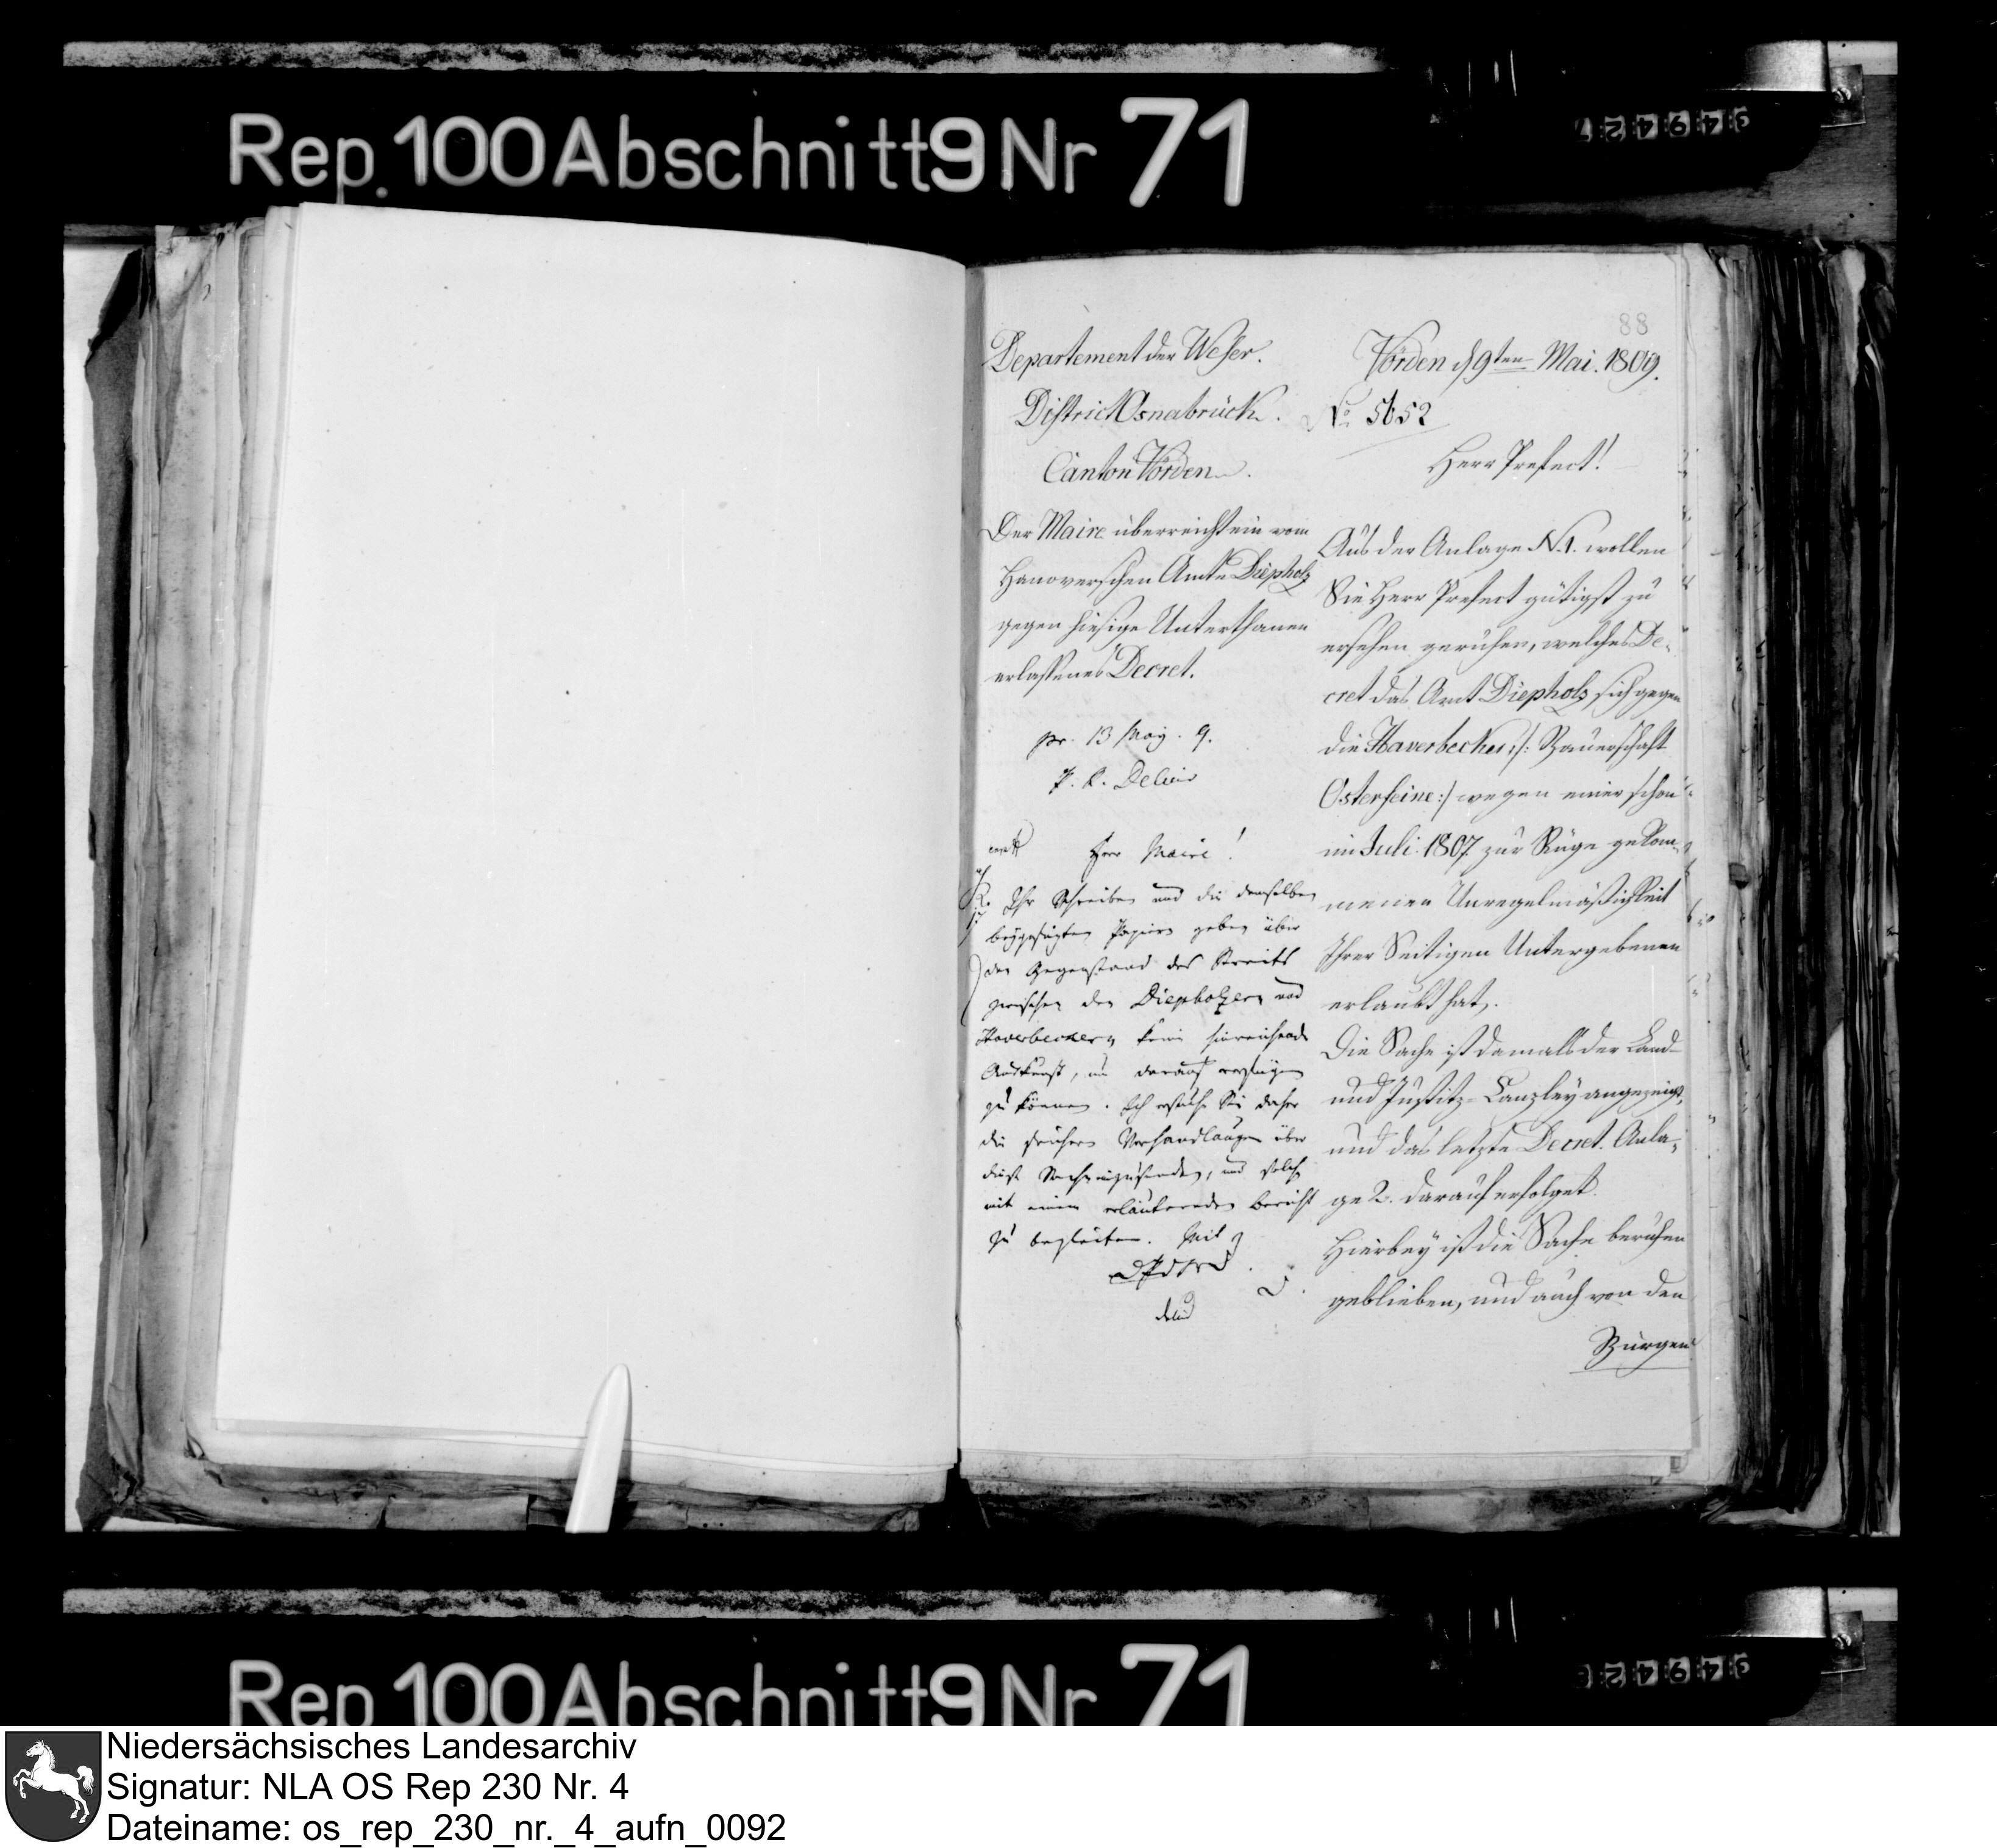 Rep. 100 Abschnitt 9 Nr 71
949427
88
Departement der Weser.
District Osnabrück.
Canton Vörden.
Der Maire überreicht ein vom
Hanoverschen Amte Diepholz
gegen hiesige Unterthanen
erlaßenes Decret.
pr. 13 May. 9.
Herr Maire!
Ihr Schreiben und die demselben
beygefügten Papiere geben über
den Gegenstand des Streits
zwischen den Diepholzern und
Haverbeckern keine hinreichende
Auskunft, um darauf verfügen
zu können. Ich ersuche Sie daher
die frühern Verhandlungen über
diese Sache einzusenden, und solche
mit einem erläuternden Bericht
zu begleiten. Mit
Vörden d 9ten Mai. 1809.
No. 5652
Herr Prefect!
Aus der Anlage N. 1. wollen
Sie Herr Prefect gütigst zu
ersehen geruhen, welches De-
cret das Amt Diepholz sich gegen
die Haverbecker /: Bauerschaft
Osterfeine :/ wegen einer schon
im Juli 1807 zur Rüge gekom-
menen Unregelmäßigkeit
Ihrer Seitigen Untergebenen
erlaubt hat.
Die Sache ist damals der Land-
und Justitz-Canzley angezeigt,
und das letzte Decret. Anla-
ge 2. darauf erfolget.
Hierbey ist die Sache beruhen
geblieben, und auch von den
Bürgen
Rep 100 Abschnitt 9 Nr 71
Niedersächsisches Landesarchiv
Signatur: NLA OS Rep 230 Nr. 4
Dateiname: os_rep_230_nr._4_aufn_0092